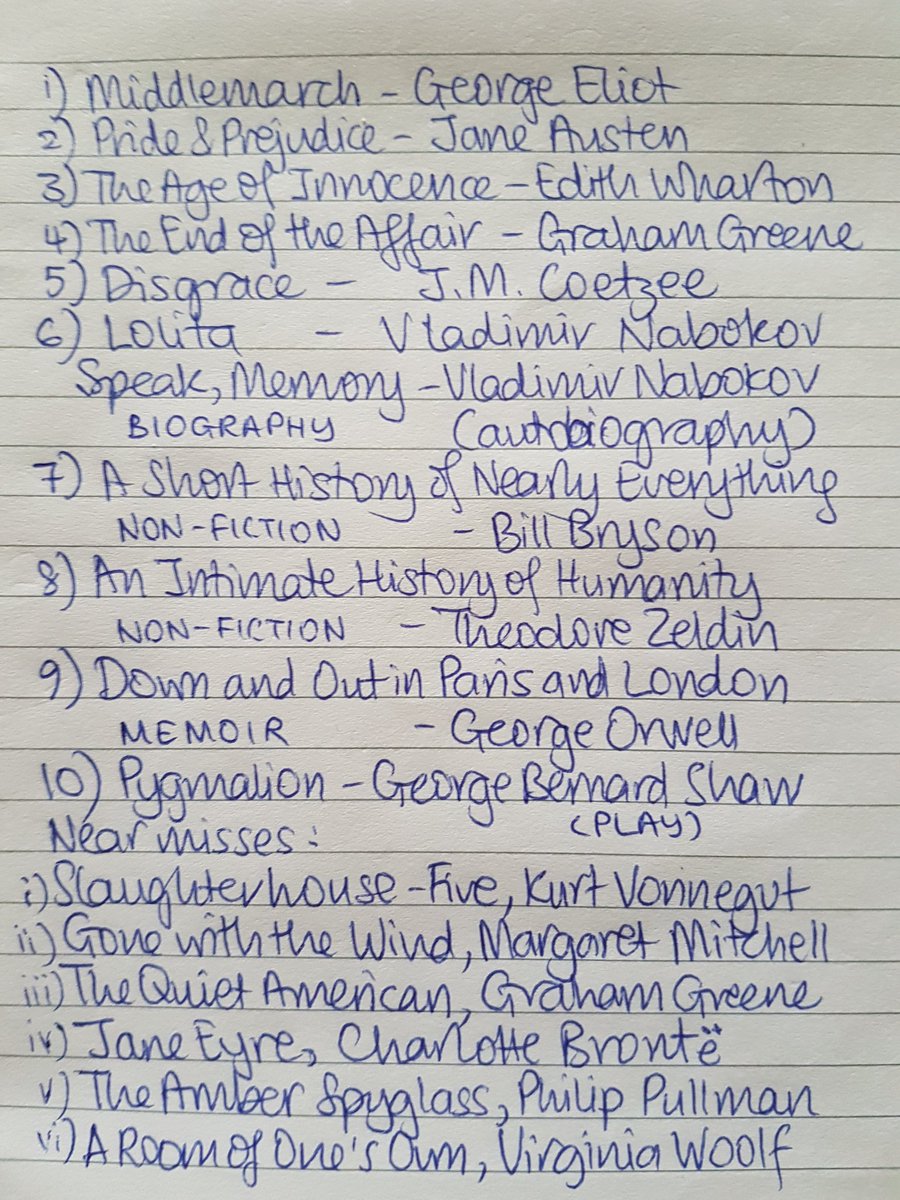 i) Middlemarch - George Eliot
2) Pride & Prejudice - Jane Austen
3) The Age of Innocence - Edith Wharton
4) The End of the Affair - Graham Greene
5) Disgrace - J.M. Coetzee
6) Lolita - Vladimir Nabokov
Speak, Memory - Vladimir Nabokov
BIOGRAPHY (autobiography)
7) A Short History of Nearly Everything
NON-FICTION - Bill Bryson
8) An Intimate History of Humanity
NON-FICTION - Theodore Zeldin
9) Down and Out in Paris and London
MEMOIR - George Orwell
10) Pygmalion - George Bernard Shaw
(PLAY)
Near misses:
i) Slaughterhouse-Five, Kurt Vonnegut
ii) Gone with the Wind, Margaret Mitchell
iii) The Quiet American, Graham Greene
iv) Jane Eyre, Charlotte Brontë
v) The Amber Spyglass, Philip Pullman
vi) A Room of One's Own, Virginia Woolf